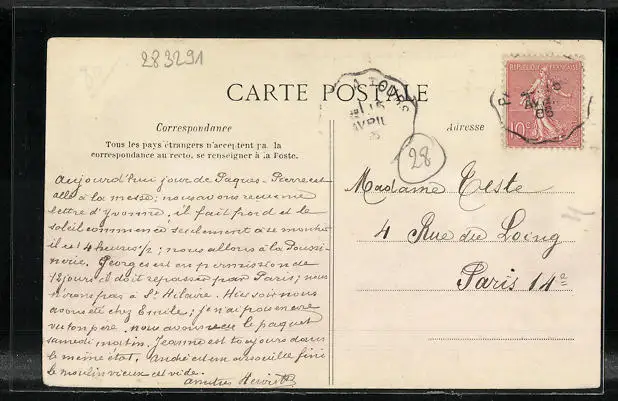 283291
CARTE POSTALE
A TOURS
15
AVRIL
REPUBLIQUE FRANÇAISE
10c
28
Correspondance
Adresse
Tous les pays étrangers n'acceptent pas la
correspondance au recto, se renseigner à la Poste.
Aujourd'hui jour de Paques - Pierre est
allé à la messe; nous avons reçu une
lettre d'Yvonne, il fait froid et le
soleil commence seulement à se montrer
il est 4 heures ½; nous allons à la Poussi-
nerie. Georges est en permission de
12 jours il doit repasser par Paris; nous
n'irons pas à St Hilaire. Hier soir nous
avons été chez Emile; j'en ai pas encore
vu ton père. nous avons reçu le paquet
samedi matin. Jeanne est toujours dans
le même état. André est un
le moulin vieux est vide.
amitiés
Madame Teste
4 Rue du Loing
Paris 14e